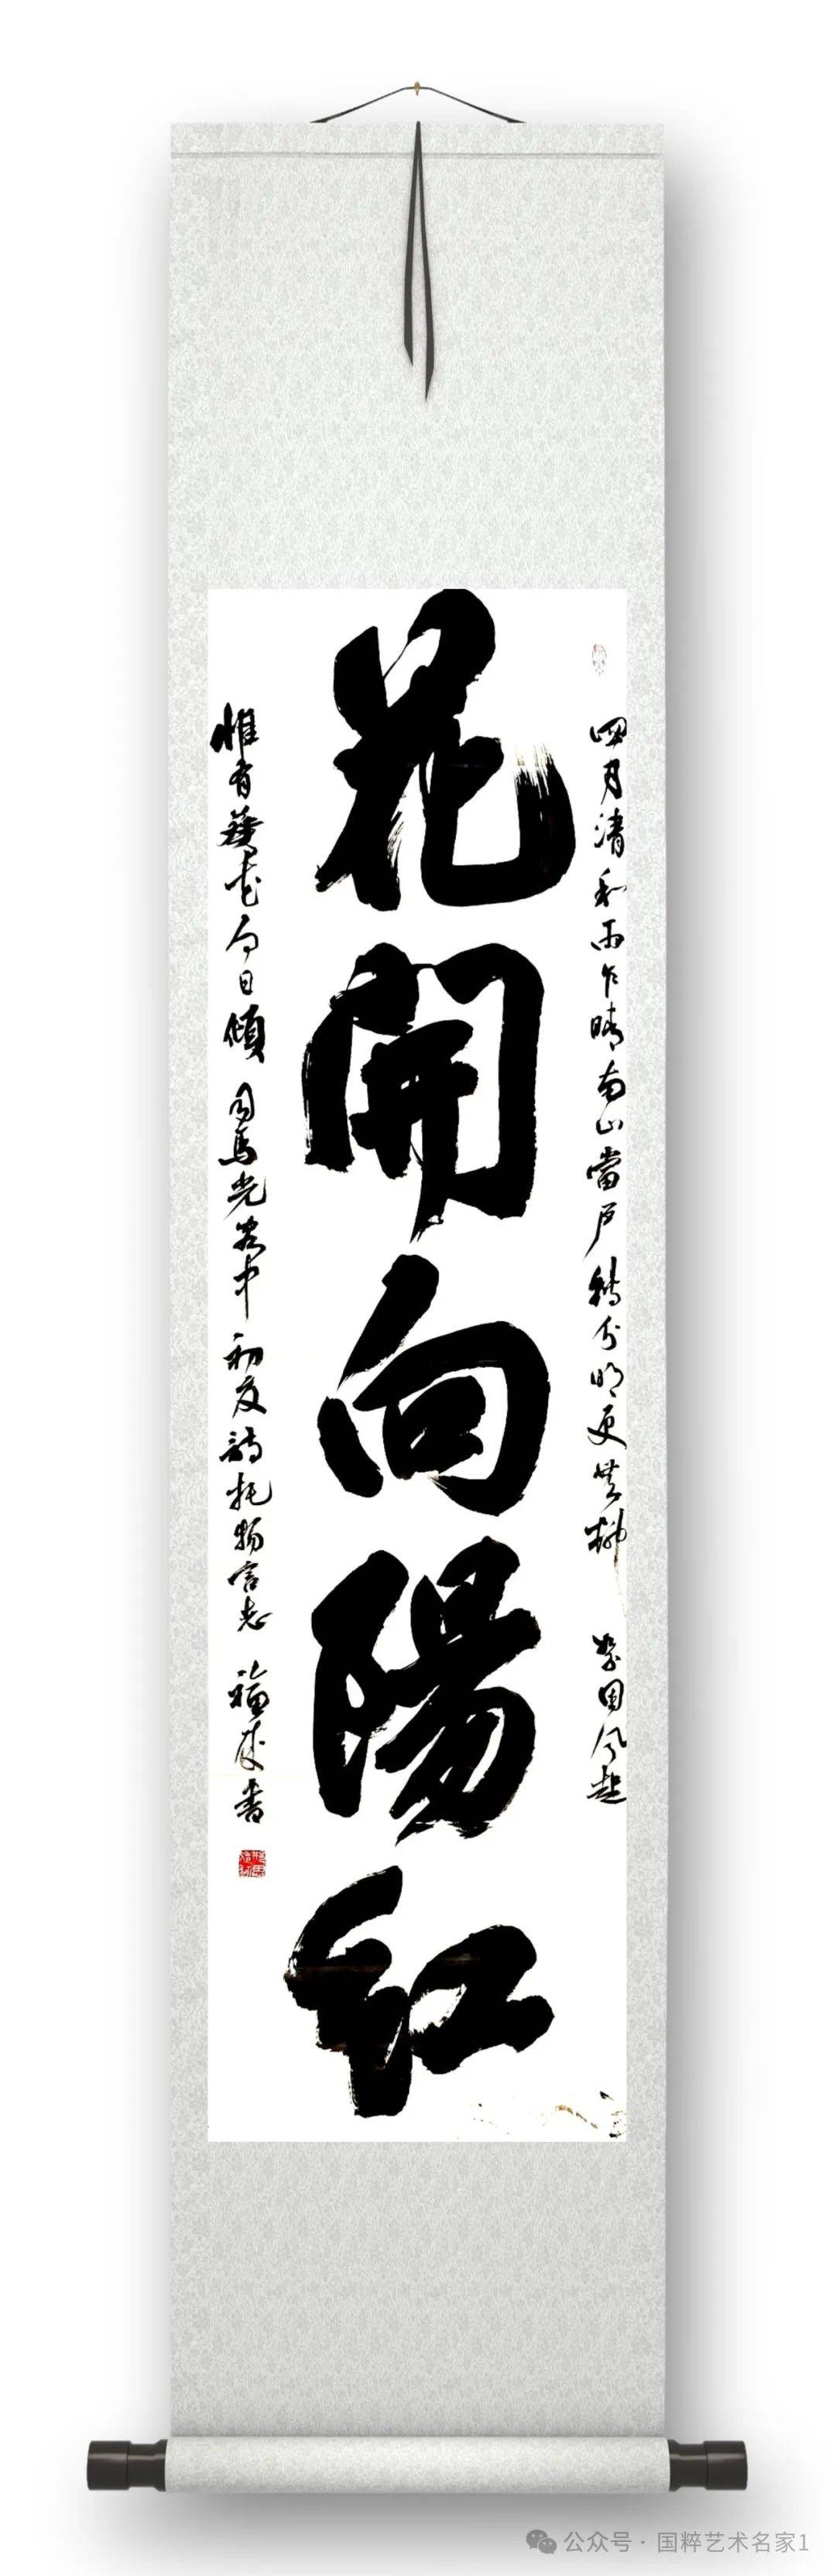 四月清和雨乍晴南山當户轉分明更無柳絮因風起
花開向陽紅
惟有葵花向日傾 司馬光客中初夏詩托物言志 福成書
公众号·国粹艺术名家1